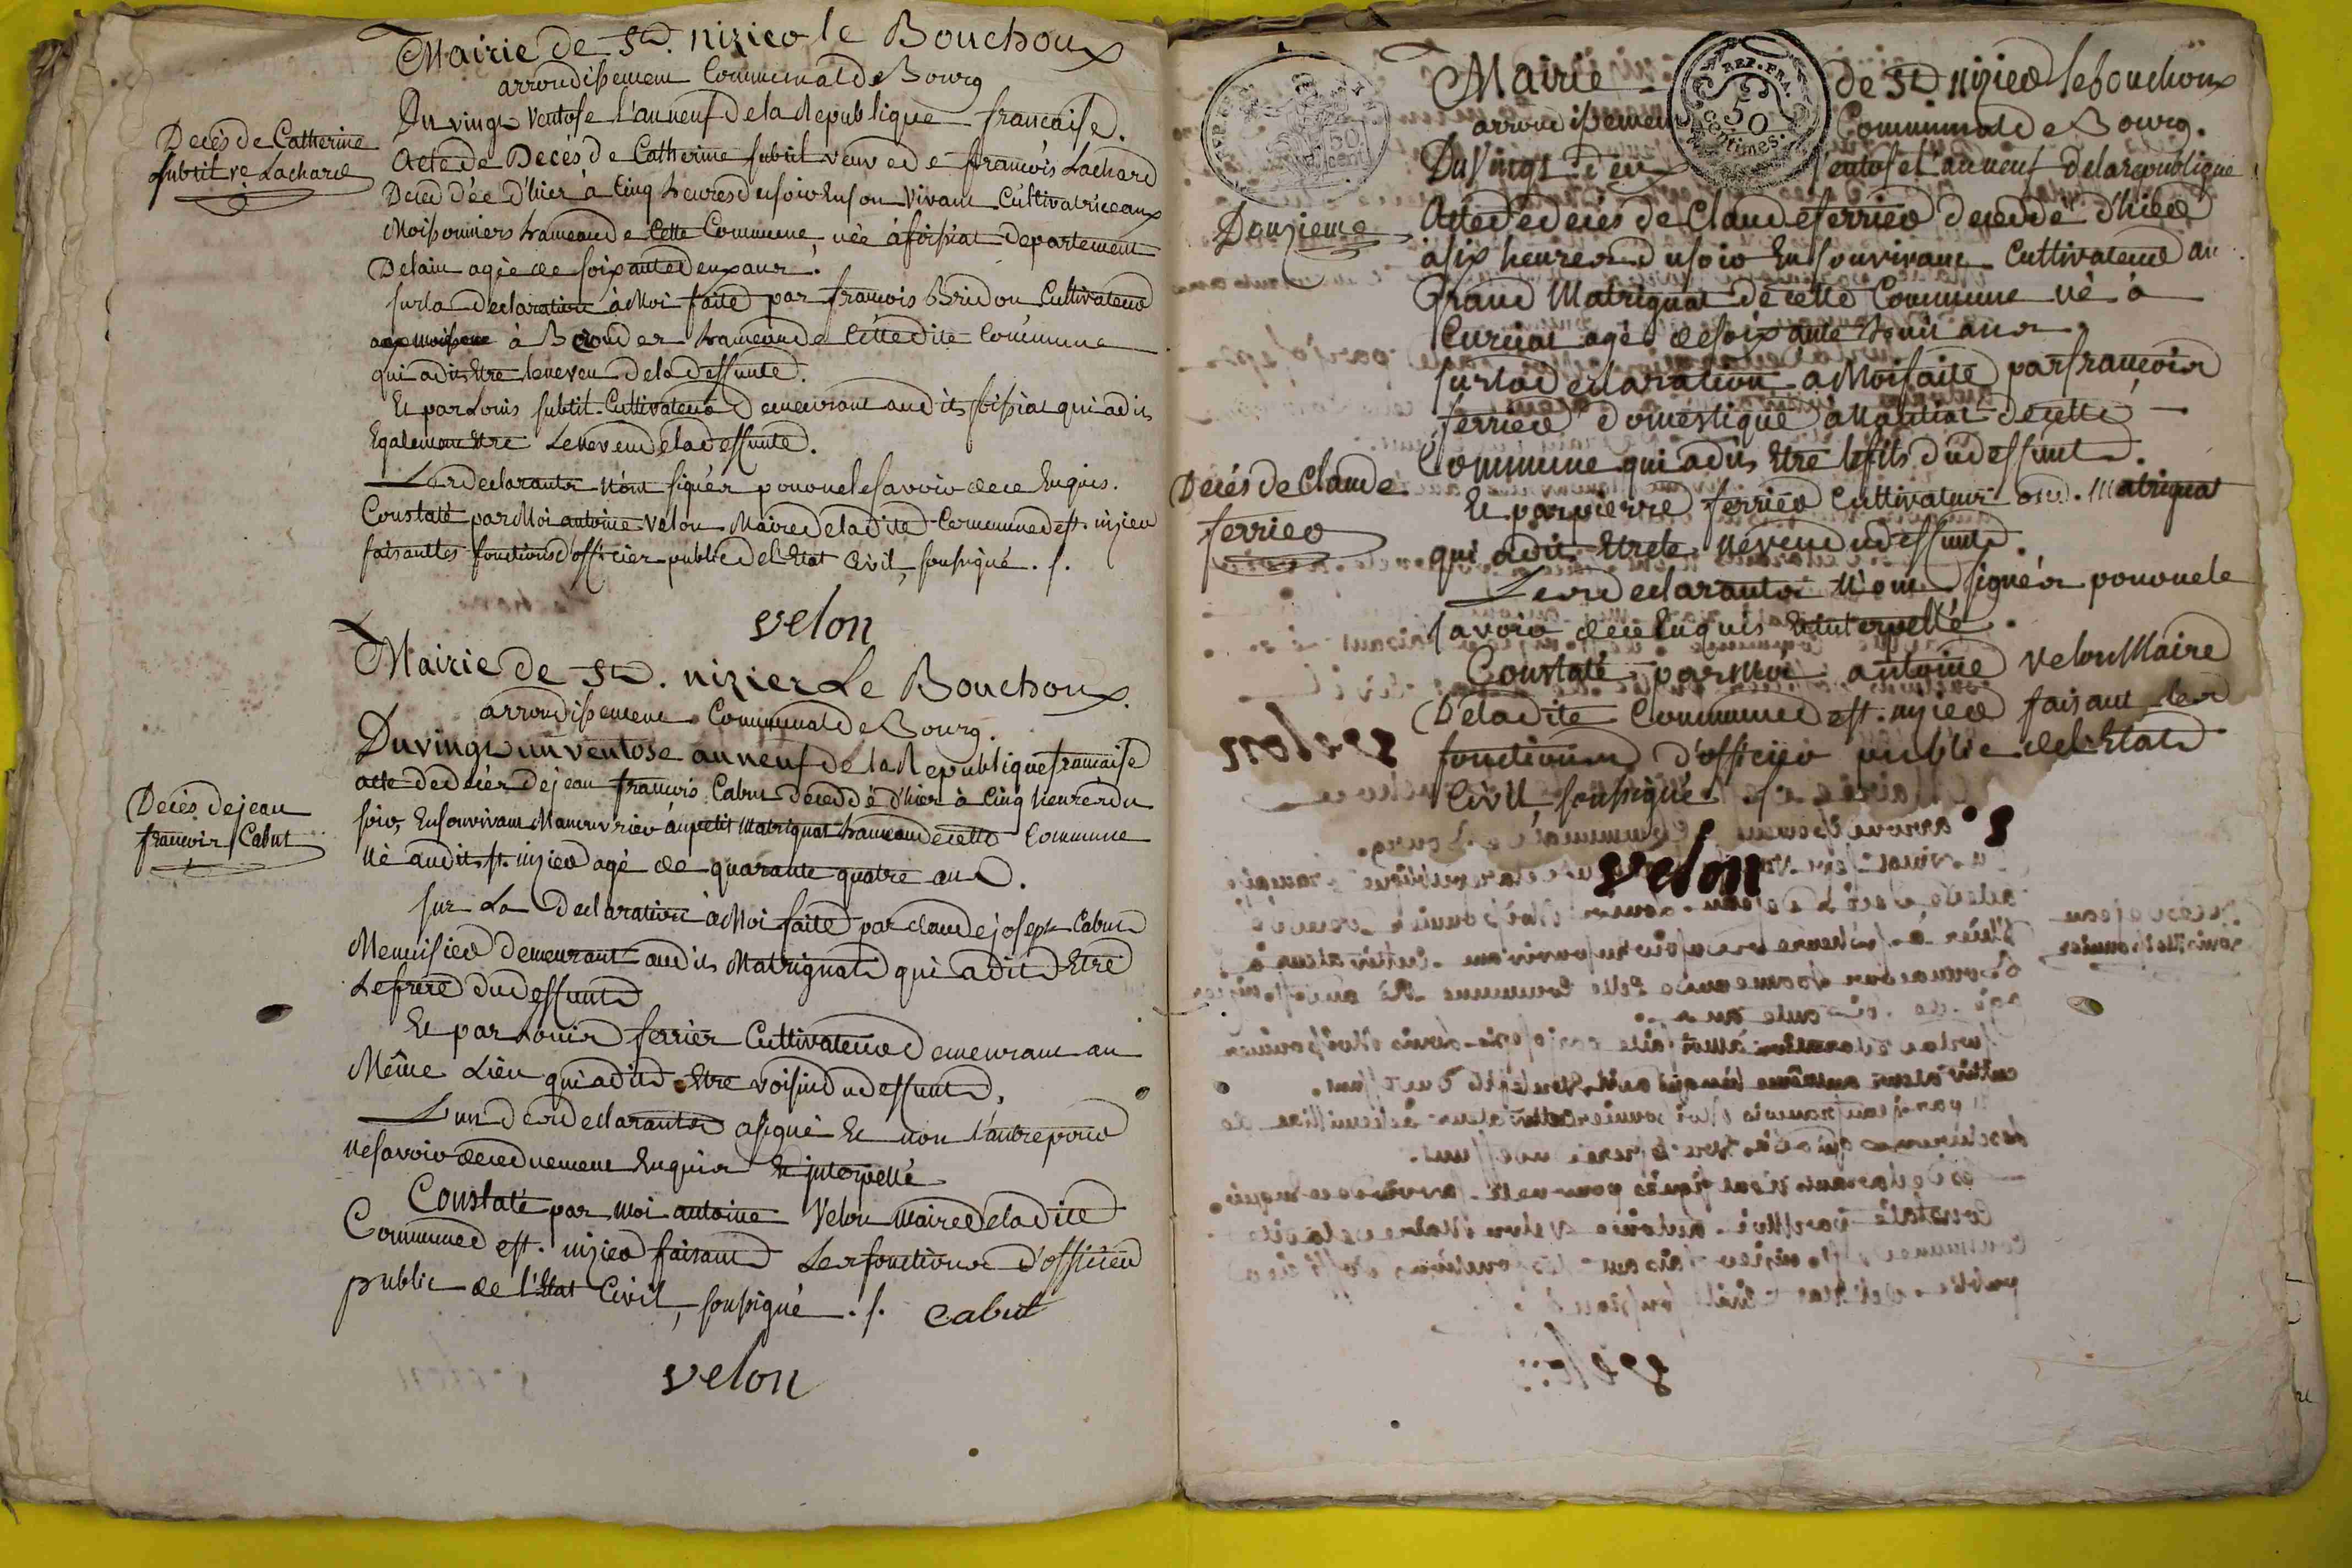 Mairie de St. nizier le Bouchoux
arrondissement Communal de Bourg
Du vingt Ventose l'an neuf de la Republique francaise.
Decés de Catherine
subtil ve Lachard
Acte de Decés de Catherine subtil veuve de françois Lachard
Decedée d'hier à Cinq heures du soir En son Vivant Cultivatrice aux
Moissonniers hameau de Cette Commune, née à foissiat departement
De lain agée de soixante deux ans.
sur la declaration à Moi faite par françois Bridon Cultivateur
à hameau de Cette dite Commune
qui a dit Etre le neveu de la deffunte.
Et par Louis subtil Cultivateur Demeurant au dit foissiat qui a dit
Egalement Etre Le neveu de la deffunte.
Les declarants n'ont signés pour ne le savoir de ce Enquis.
Constaté par Moi antoine velon Maire de la dite Commune de st. nizier
faisant les fonctions d'officier public de l'Etat Civil, soussigné . s.
velon
Mairie de St. nizier Le Bouchoux.
arrondissement Communal de Bourg.
Du vingt un ventose an neuf de la Republique francaise
Decés de jean
francois Cabut
acte de deces de jean françois Cabut decedé d'hier à Cinq heures du
soir, En son vivant Manouvrier au petit Matrignat hameau de cette Commune
Né au dit st. nizier agé de quarante quatre ans.
sur La Declaration à Moi faite par claude joseph Cabut
Menuisier demeurant au dit Matrignat qui a dit Etre
Le frere du deffunt
Et par Louis ferrier Cultivateur Demeurant au
Même Lieu qui a dit Etre voisin du deffunt.
L'un des declarants a signé Et non l'autre pour
ne savoir de ce duement Enquis Et interpellé
Constaté par Moi antoine Velon Maire de la dite
Commune de st. nizier faisant Les fonctions d'officier
public de l'Etat Civil, soussigné . s. Cabut
velon
REP. FRA.
50
centimes.
Mairie de St nizier le bouchoux
arrondissement Communal de Bourg.
Du Vingt deux Ventose l'an neuf de la republique
Douzieme
Acte de deces de Claude ferrier decedé d'hier
à six heures du soir En son vivant Cultivateur au
Grand Matrignat de cette Commune né à
Curciat agé de soixante huit ans.
sur la declaration a Moi faite par françois
ferrier domestique de cette
Commune qui a dit Etre le fils du deffunt.
Decés de Claude
ferrier
Et par pierre ferrier Cultivateur Matrignat
qui a dit Etre le neveu du deffunt.
Les declarants N'ont signés pour ne le
savoir de ce Enquis Et interpellé.
Constaté par Moi antoine velon Maire
De la dite Commune de st. nizier faisant les
fonctions d'officier public de l'Etat
Civil soussigné . s
velon